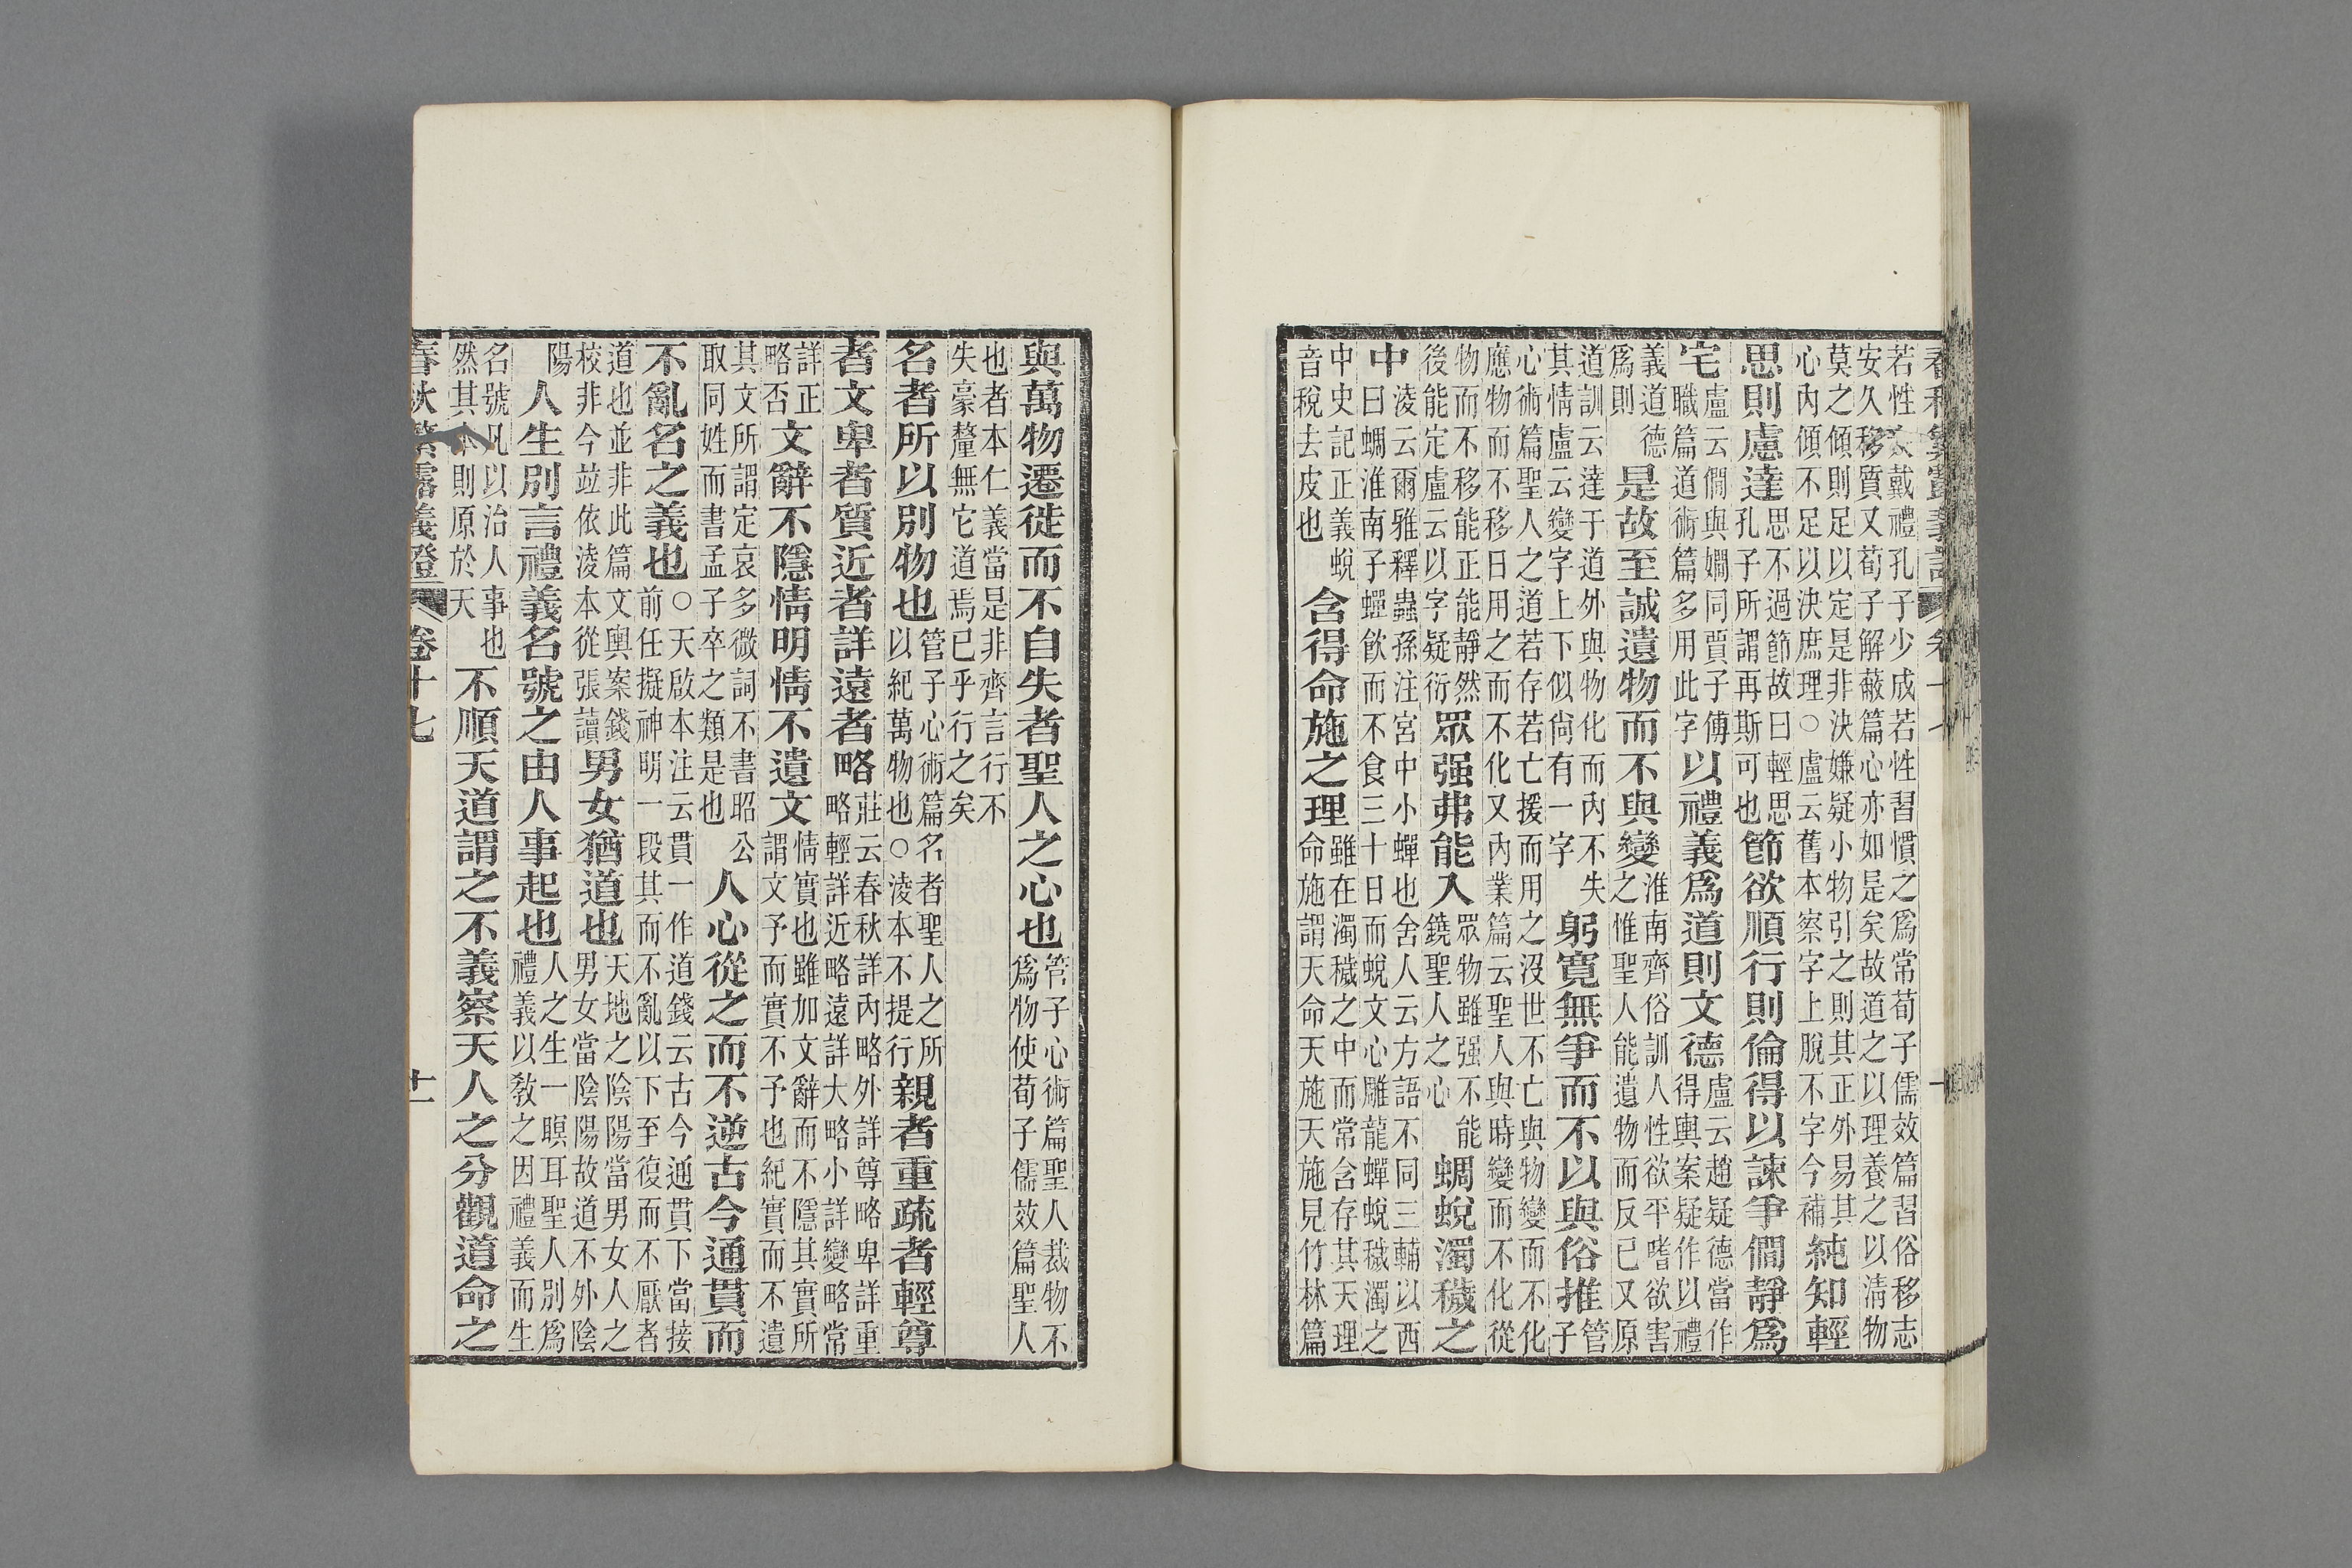 春秋繁露義證 卷十七
若性大戴禮孔子少成若性習慣之爲常荀子儒效篇習俗移志
安久移質又荀子解蔽篇心亦如是矣故道之以理養之以淸物
莫之傾則足以定是非決嫌疑小物引之則其正外易其
心內傾不足以決庶理○盧云舊本察字上脫不字今補純知輕
思則慮達思不過節故曰輕思孔子所謂再斯可也節欲順行則倫得以諫爭僩靜爲
宅盧云僩與嫺同賈子傅職篇道術篇多用此字以禮義爲道則文德盧云趙疑德當作得輿案疑作以禮
義道德爲則是故至誠遺物而不與變淮南齊俗訓人性欲平嗜欲害之惟聖人能遺物而反己又原
道訓云達于道外與物化而內不失其情盧云變字上下似尙有一字躬寬無爭而不以與俗推管子
心術篇聖人之道若存若亡援而用之沒世不亡與物變而不化
應物而不移日用之而不化又內業篇云聖人與時變而不化從
物而不移能正能靜然後能定盧云以字疑衍眾强弗能入眾物雖强不能鐃聖人之心蜩蛻濁穢之
中淩云爾雅釋蟲孫注宮中小蟬也舍人云方語不同三輔以西曰蜩淮南子蟺飲而不食三十日而蛻文心雕龍蟬蛻穢濁之
中史記正義蛻音稅去皮也含得命施之理雖在濁穢之中而常含存其天理命施謂天命天施天施見竹林篇
與萬物遷徙而不自失者聖人之心也管子心術篇聖人裁物不爲物使荀子儒效篇聖人
也者本仁義當是非齊言行不
失豪釐無它道焉已乎行之矣
名者所以別物也管子心術篇名者聖人之所以紀萬物也○淩本不提行親者重疏者輕尊
者文卑者質近者詳遠者略莊云春秋詳內略外詳尊略卑詳重略輕詳近略遠詳大略小詳變略常
詳正略否文辭不隱情明情不遺文情實也雖加文辭而不隱其實所謂文予而實不予也紀實而不遺
其文所謂定哀多微詞不書昭公取同姓而書孟子卒之類是也人心從之而不逆古今通貫而
不亂名之義也○天啟本注云貫一作道錢云古今通貫下當接前任擬神明一段其而不亂以下至復而不厭者
道也並非此篇文輿案錢校非今竝依淩本從張讀男女猶道也天地之陰陽當男女人之男女當陰陽故道不外陰
陽人生別言禮義名號之由人事起也人之生一瞑耳聖人別爲禮義以敎之因禮義而生
名號凡以治人事也然其本則原於天不順天道謂之不義察天人之分觀道命之
春秋繁露義證 卷十七 十一